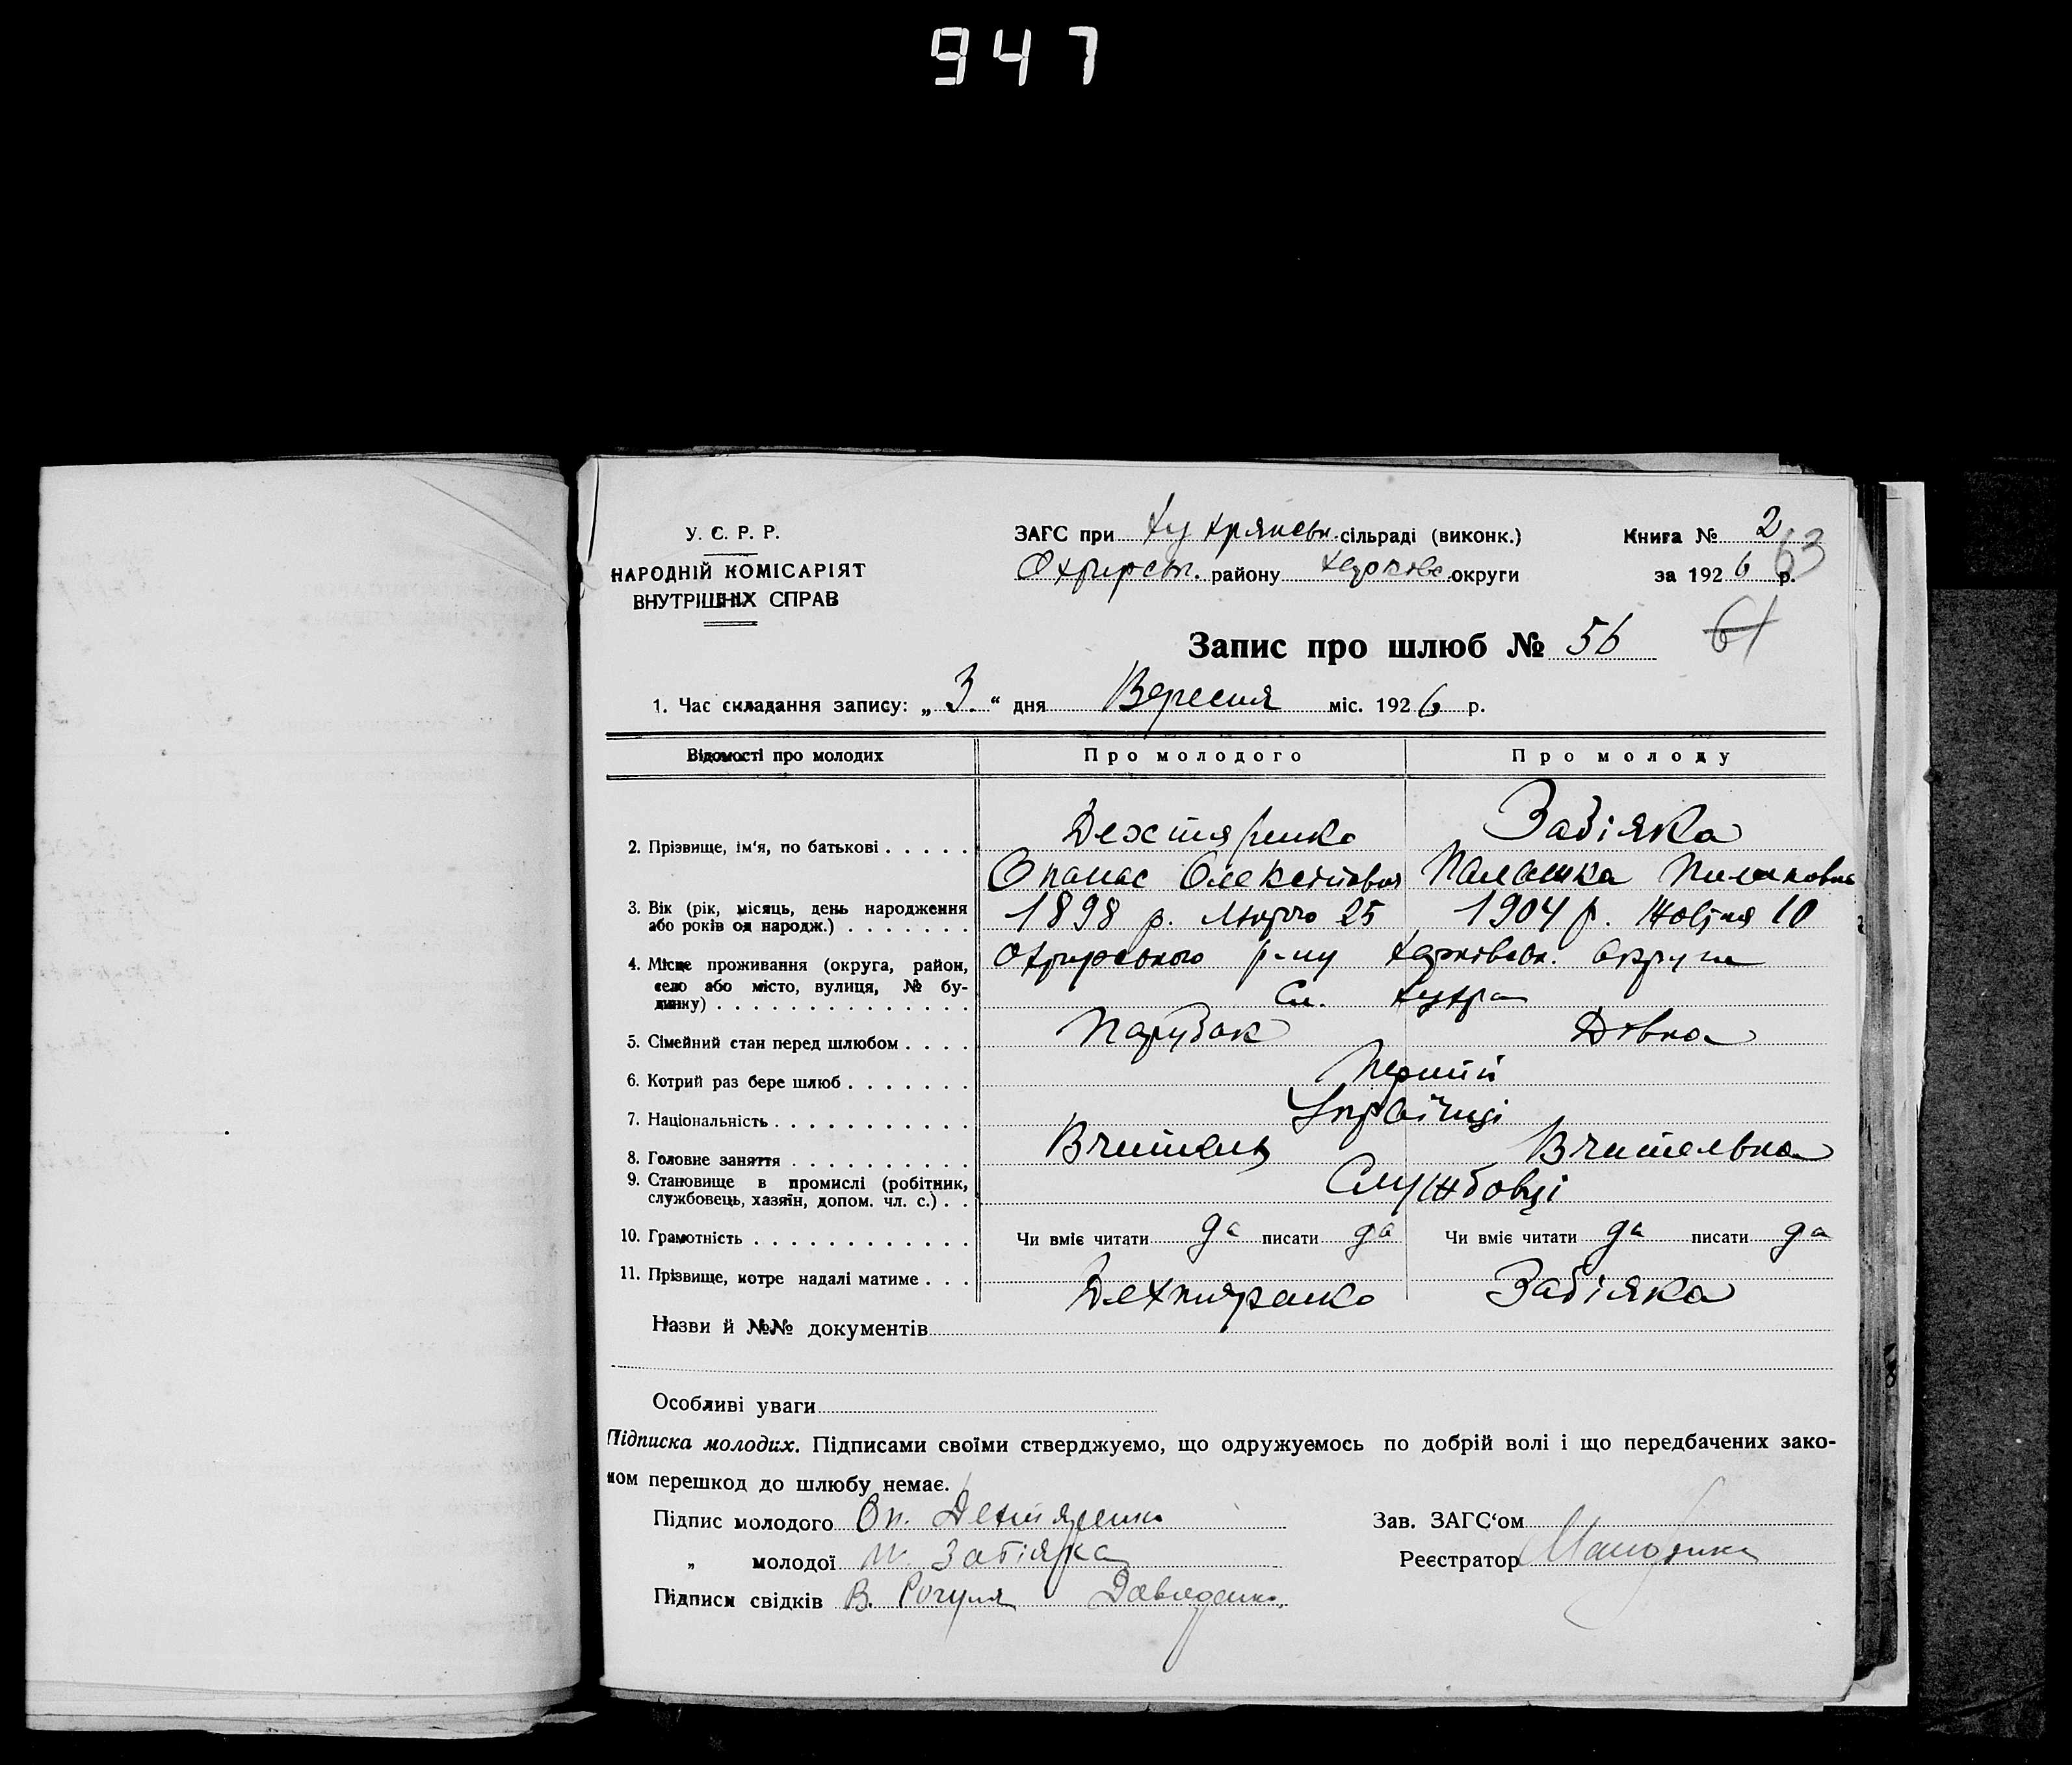 947
У. С. Р. Р.
НАРОДНІЙ КОМІСАРІЯТ
ВНУТРІШНІХ СПРАВ
ЗАГС при Хухрянськ. сільраді (виконк.)
Охтирськ. району Харківс. округи
Книга № 2
63
за 1926 р.
Запис про шлюб № 56
61
1. Час складання запису: „ 3 “ дня Вересня міс. 1926 р.
Відомості про молодих Про молодого Про молоду
2. Прізвище, ім'я, по батькові Дехтяренко Забіяка
Опанас Олексійович Палашка Пилиповна
3. Вік (рік, місяць, день народження або років од народж.) 1898 р. Лютого 25 1904 р. Жовтня 10
4. Місце проживання (округа, район, село або місто, вулиця, № будинку) Охтирського р-ну Харківськ. округи
Сл. Хухра
5. Сімейний стан перед шлюбом Парубок Дівка
6. Котрий раз бере шлюб Перший
7. Національність Українці
8. Головне заняття Вчитель Вчителька
9. Становище в промислі (робітник, службовець, хазяїн, допом. чл. с.) Службовці
10. Грамотність Чи вміє читати да писати да Чи вміє читати да писати да
11. Прізвище, котре надалі матиме Дехтяренко Забіяка
Назви й №№ документів
Особливі уваги
Підписка молодих. Підписами своїми стверджуємо, що одружуємось по добрій волі і що передбачених зако-
ном перешкод до шлюбу немає.
Підпис молодого Оп. Дехтяренко
„ молодої П. Забіяка
Підписи свідків В. Рогуля Давиденко
Зав. ЗАГС'ом
Реєстратор